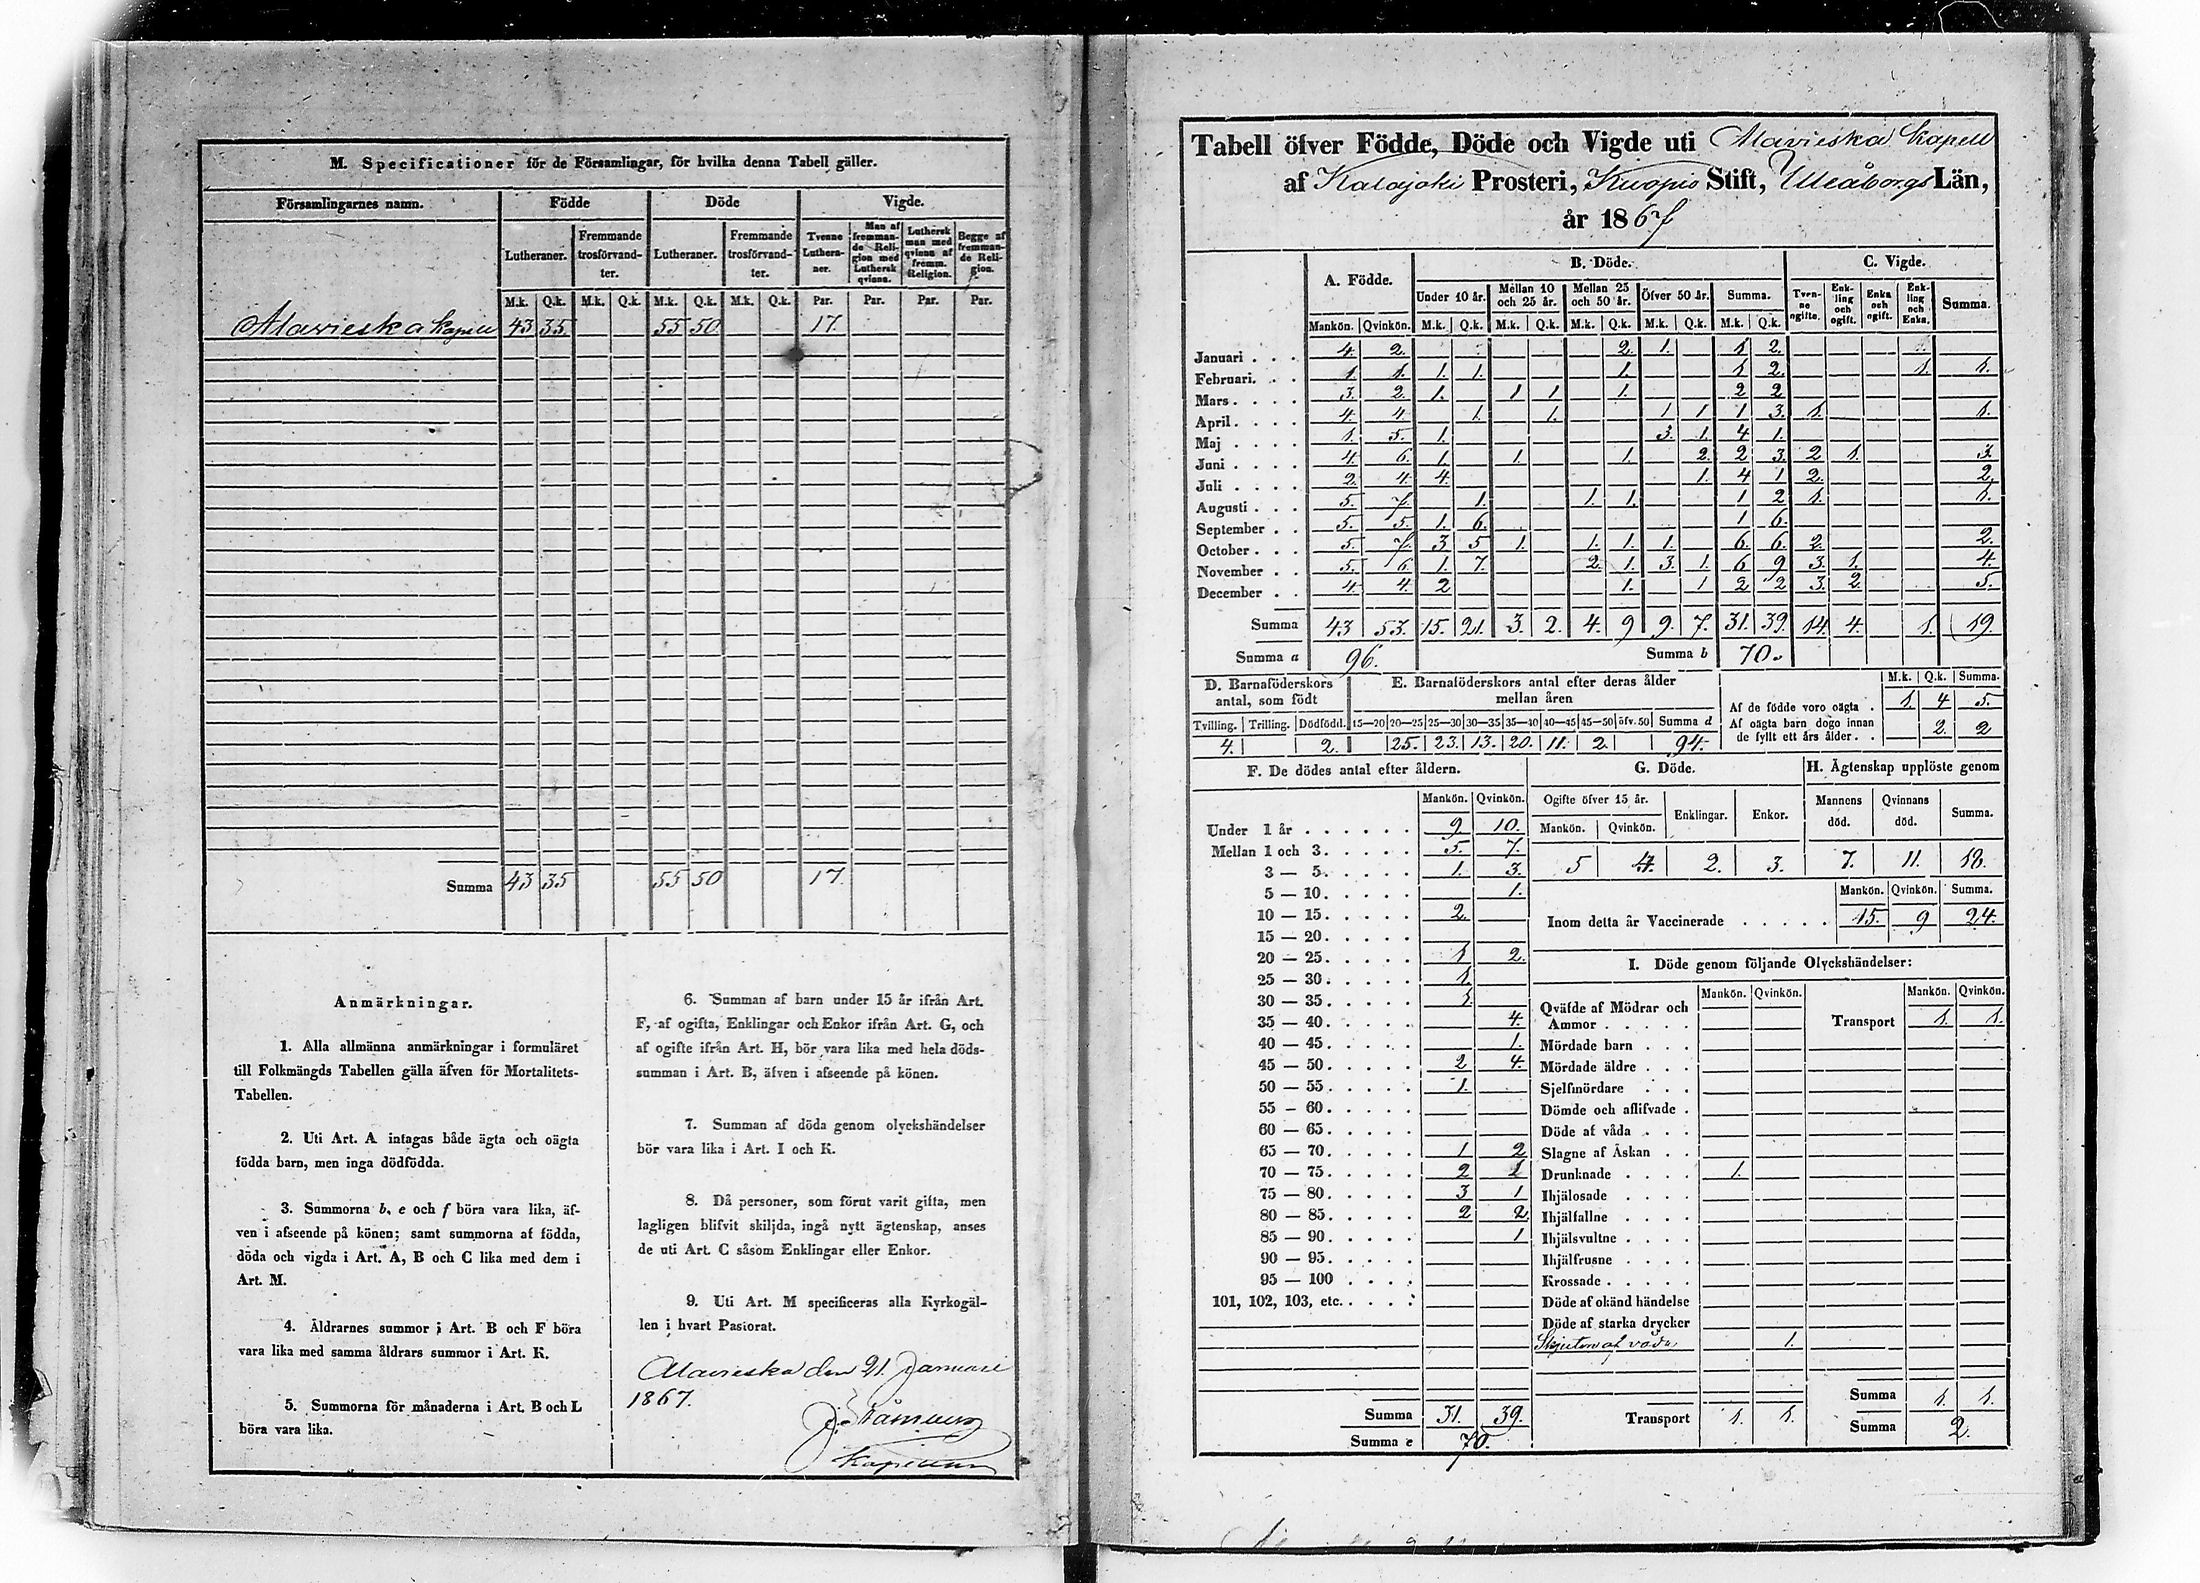 M. Specificationer för de Församlingar, för hvilka denna Tabell gäller.
Församlingarnes namn. Födde Döde Vigde.
Lutheraner. Fremmande trosförvandter. Lutheraner. Fremmande trosförvandter. Tvenne Lutheraner. Man af fremmande Religion med Luthersk qvinna. Luthersk man med qvinna af fremm. Religion. Begge af fremmande Religion.
M.k. Q.k. M.k. Q.k. M.k. Q.k. M.k. Q.k. Par. Par. Par. Par.
Alavieska Kapell 43 35 55 50 17.
Summa 43 35 55 50 17.
Anmärkningar.
1. Alla allmänna anmärkningar i formuläret
till Folkmängds Tabellen gälla äfven för Mortalitets-
Tabellen.
2. Uti Art. A intagas både ägta och oägta
födda barn, men inga dödfödda.
3. Summorna b, e och f böra vara lika, äf-
ven i afseende på könen; samt summorna af födda,
döda och vigda i Art. A, B och C lika med dem i
Art. M.
4. Åldrarnes summor i Art. B och F böra
vara lika med samma åldrars summor i Art. K.
5. Summorna för månaderna i Art. B och L
böra vara lika.
6. Summan af barn under 15 år ifrån Art.
F, af ogifta, Enklingar och Enkor ifrån Art. G, och
af ogifte ifrån Art. H, bör vara lika med hela döds-
summan i Art. B, äfven i afseende på könen.
7. Summan af döda genom olyckshändelser
bör vara lika i Art. I och K.
8. Då personer, som förut varit gifta, men
lagligen blifvit skiljda, ingå nytt ägtenskap, anses
de uti Art. C såsom Enklingar eller Enkor.
9. Uti Art. M specificeras alla Kyrkogäl-
len i hvart Pastorat.
Alavieska den 21. Januari
1867.
Tabell öfver Födde, Döde och Vigde uti Alavieska Kapell
af Kalajoki Prosteri, Kuopio Stift, Uleåborgs Län,
år 1867
A. Födde. B. Döde. C. Vigde.
Under 10 år. Mellan 10 och 25 år. Mellan 25 och 50 år. Öfver 50 år. Summa. Tvenne ogifta. Enkling och ogift. Enka och ogift. Enkling och Enka. Summa.
Mankön. Qvinkön. M.k. Q.k. M.k. Q.k. M.k. Q.k. M.k. Q.k. M.k. Q.k.
Januari . . . 4. 2. 2. 1. 1 2.
Februari. . . 1 1. 1. 1. 1. 1 2. 1. 1.
Mars . . . . 3. 2. 1. 1 1 1. 2 2
April . . . . 4. 4. 1. 1. 1 1 1 3. 1. 1.
Maj . . . . 1. 5. 1. 3. 1. 4 1.
Juni . . . . 4. 6. 1. 1. 1. 2. 2 3. 2 1. 3.
Juli . . . . 2. 4 4. 1. 4 1 2. 2.
Augusti . . . 5. 7. 1. 1. 1. 1 2 1. 1.
September . . 5. 5. 1. 6. 1 6.
October . . . 5. 7. 3 5 1. 1. 1. 1. 6. 6. 2. 2.
November . . 5. 6. 1. 7. 2. 1. 3. 1. 6 9 3. 1. 4.
December . . 4. 4. 2 1. 1 2 2 3. 2. 5.
Summa 43 53. 15. 21. 3. 2. 4. 9 9. 7. 31. 39. 14. 4. 1. 19.
Summa a 96. Summa b 70.
D. Barnaföderskors antal, som födt
Tvilling. Trilling. Dödfödd.
4. 2.
E. Barnaföderskors antal efter deras ålder
mellan åren
15—20 20—25 25—30 30—35 35—40 40—45 45—50 öfv. 50 Summa d
25. 23. 13. 20. 11. 2. 94.
M.k. Q.k. Summa.
Af de födde voro oägta . 1. 4 5.
Af oägta barn dogo innan
de fyllt ett års ålder . . 2. 2
F. De dödes antal efter åldern.
Mankön. Qvinkön.
Under 1 år . . . . . . 9 10.
Mellan 1 och 3. . . . . 5. 7.
3 — 5. . . . . 1. 3.
5 — 10. . . . . 1.
10 — 15. . . . . 2.
15 — 20. . . . .
20 — 25. . . . . 1 2.
25 — 30. . . . . 1.
30 — 35. . . . . 1.
35 — 40. . . . . 4.
40 — 45. . . . . 1.
45 — 50. . . . . 2 4.
50 — 55. . . . . 1.
55 — 60. . . . .
60 — 65. . . . .
65 — 70. . . . . 1 2
70 — 75. . . . . 2 1
75 — 80. . . . . 3 1
80 — 85. . . . . 2 2.
85 — 90. . . . . 1
90 — 95. . . . .
95 — 100 . . . .
101, 102, 103, etc. . . . .
Summa 31. 39.
Summa e 70.
G. Döde.
Ogifte öfver 15 år. Enklingar. Enkor.
Mankön. Qvinkön.
5 4. 2. 3.
H. Ägtenskap upplöste genom
Mannens död. Qvinnans död. Summa.
7. 11. 18.
Mankön. Qvinkön. Summa.
Inom detta år Vaccinerade . . . . . 15. 9 24.
I. Döde genom följande Olyckshändelser:
Mankön. Qvinkön. Mankön. Qvinkön.
Qväfde af Mödrar och
Ammor . . . . . Transport 1. 1.
Mördade barn . . .
Mördade äldre . . .
Sjelfmördare . . .
Dömde och aflifvade .
Döde af våda . . .
Slagne af Åskan . .
Drunknade . . . . 1.
Ihjälosade . . . .
Ihjälfallne . . . .
Ihjälsvultne . . . .
Ihjälfrusne . . . .
Krossade . . . . .
Döde af okänd händelse
Döde af starka drycker
Skjuten af våda 1.
Summa 1. 1.
Transport 1. 1.
Summa 2.